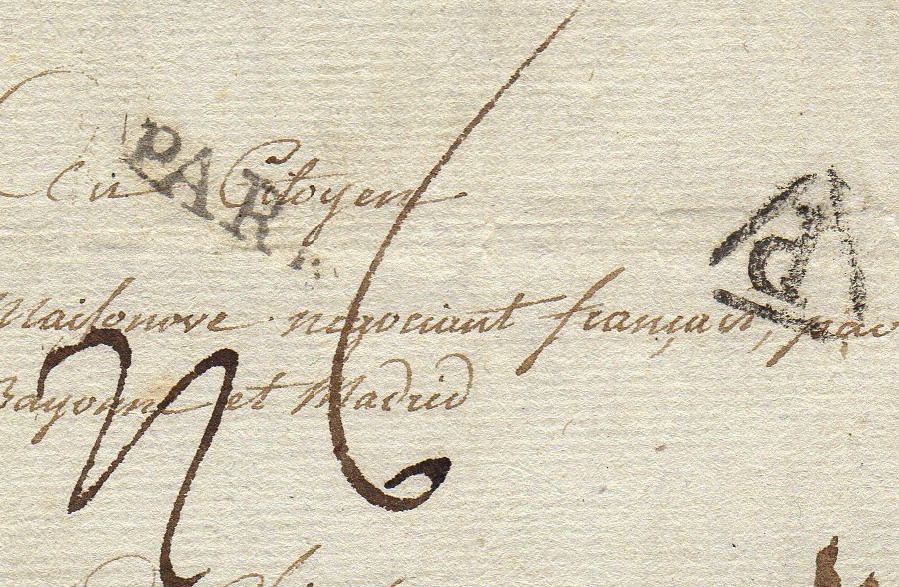 PAR
Au Citoyen
Maisonove negociant français, par
Bayonne et Madrid